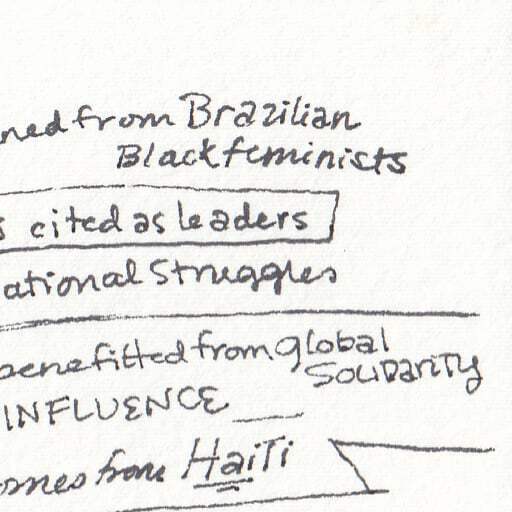 ned from Brazilian
Black feminists
s cited as leaders
ational Struggles
benefitted from global
SOLIDARITY
INFLUENCE
omes from Haiti